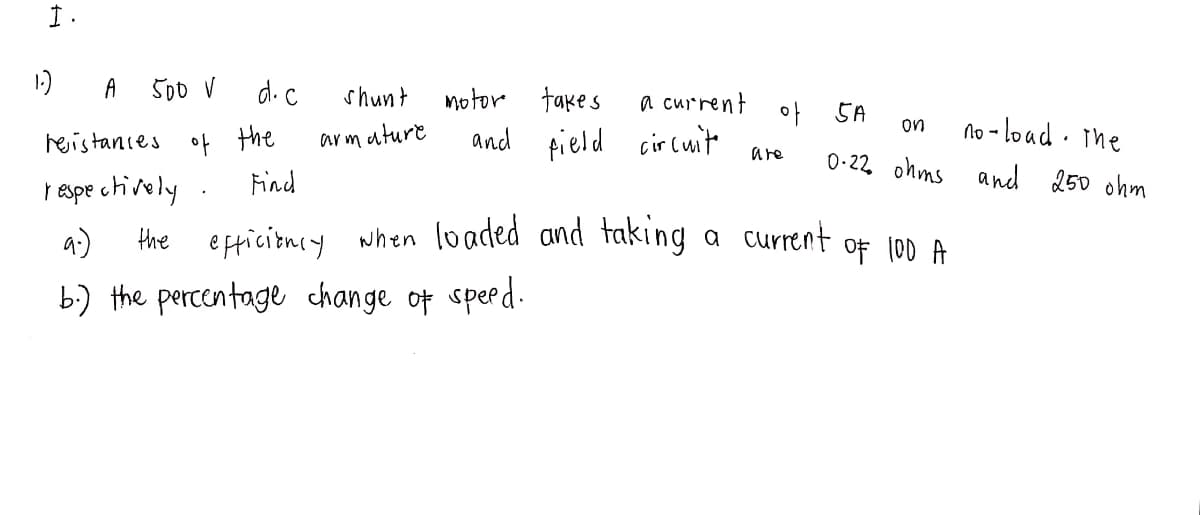 I.
1.) A 500 V d.c shunt motor takes a current of 5A on no-load. The
reistances of the armature and field circuit are 0.22 ohms and 250 ohm
respectively. Find
a.) the efficiency when loaded and taking a current of 100 A
b.) the percentage change of speed.